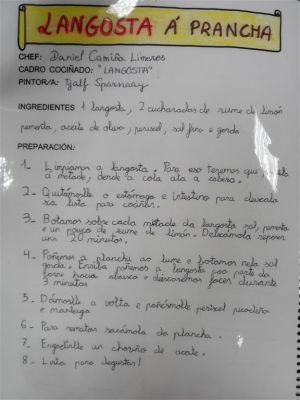 LANGOSTA Á PRANCHA
CHEF: Daniel Camiña Limeres
CADRO COCIÑADO: "LANGOSTA"
PINTOR/A: Tjalf Sparnaay
INGREDIENTES 1 langosta, 2 cucharadas de zume de limón
pementa, aceite de oliva, perixel, sal fina e gorda
PREPARACIÓN:
1_ Limpiamos a langosta. Para eso teremos que
á metade, dende a cola ata a cabeza.
2_ Quitámoslle o estómago e intestino para deixala
xa lista para cociñar.
3_ Botamos sobre cada metade da langosta sal, pementa
e un pouco de zume de limón. Deixámola repousar
uns 20 minutos.
4_ Poñemos a plancha ao lume e botamos nela sal
gorda. Enriba poñemos a langosta poo parte da
carne hacia abaixo e deixaremos facer durante
3 minutos
5_ Dámoslle a volta e poñémoslle perixel picadiño
e manteiga
6_ Para rematar sacámola da plancha.
7_ Engadirlle un chorriño de aceite.
8_ Lista para degustar!